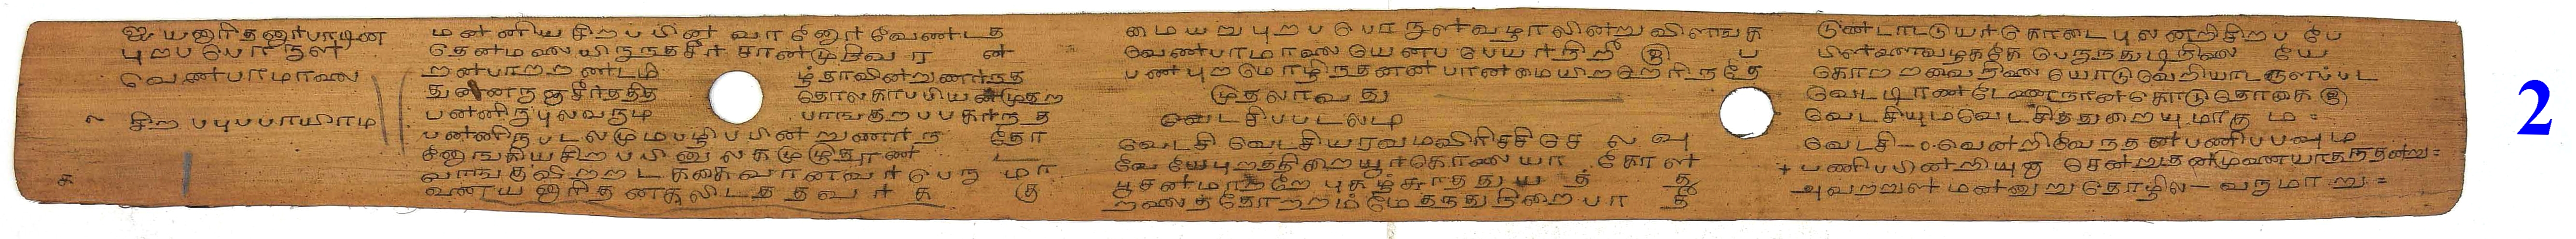 ஐயனாரிதனார்பாடின
புறபபொருள
வெணபாமாலை
சிறபபுபபாயிரம
க
மனனியசிறபபின வானோர வேணடத
தெனமலையிருநதசீர சானமுநிவர ன
றனபாறறணடமி ழ்தாவினறுணரநத
துனனருஞசீரததித தொலகாபபியனமுதற
பனனிருபுலவரும பாஙகுறபபகரநத
பனனிருபடலமுமபழிபபினறுணரந தோ
னோஙகியசிறபபினுலகமுழுதாண
வாஙகுவிறறடககைவானவர பெரு மா
வணையனாரிதனகலிடதத வரக கு
மையறுபுறபபொருளவழாலினறுவிளஙக
வெணபாமாலையெனபபெயரநிறீஇ ப
பணபுறமொழிநதனனபானமையிறறெரிநதே
முதலாவது
வெடசிபபடலம
வெடசி வெடசியரவமவிரிசசிசெ லவு
வேயேபுறததிறையூரகொலையா கோள
பூசனமாறறே புகழசுரததுயத தல
றலைததோறறமமேதநதுநிறை பா தீ
டுணடாடடுயரகொடைபுலனறிசிறப பே
பிளளைவழககே பெருநதுடிநிலை யே
கொறறவைநிலையொடுவெறியாடடுளபபட
வெடடிரணடேணையநானகொடுதொகைஇ
வெடசியுமவெடசிததுறையுமாகு ம =
வெடசி - ௦ - வெனறிவேநதனபணிபபவும
+ பணிபபினறியுஞ செனறிகனமுனையாதநதனறு =
அவறறுள மனனுறுதொழில - வருமாறு =
2